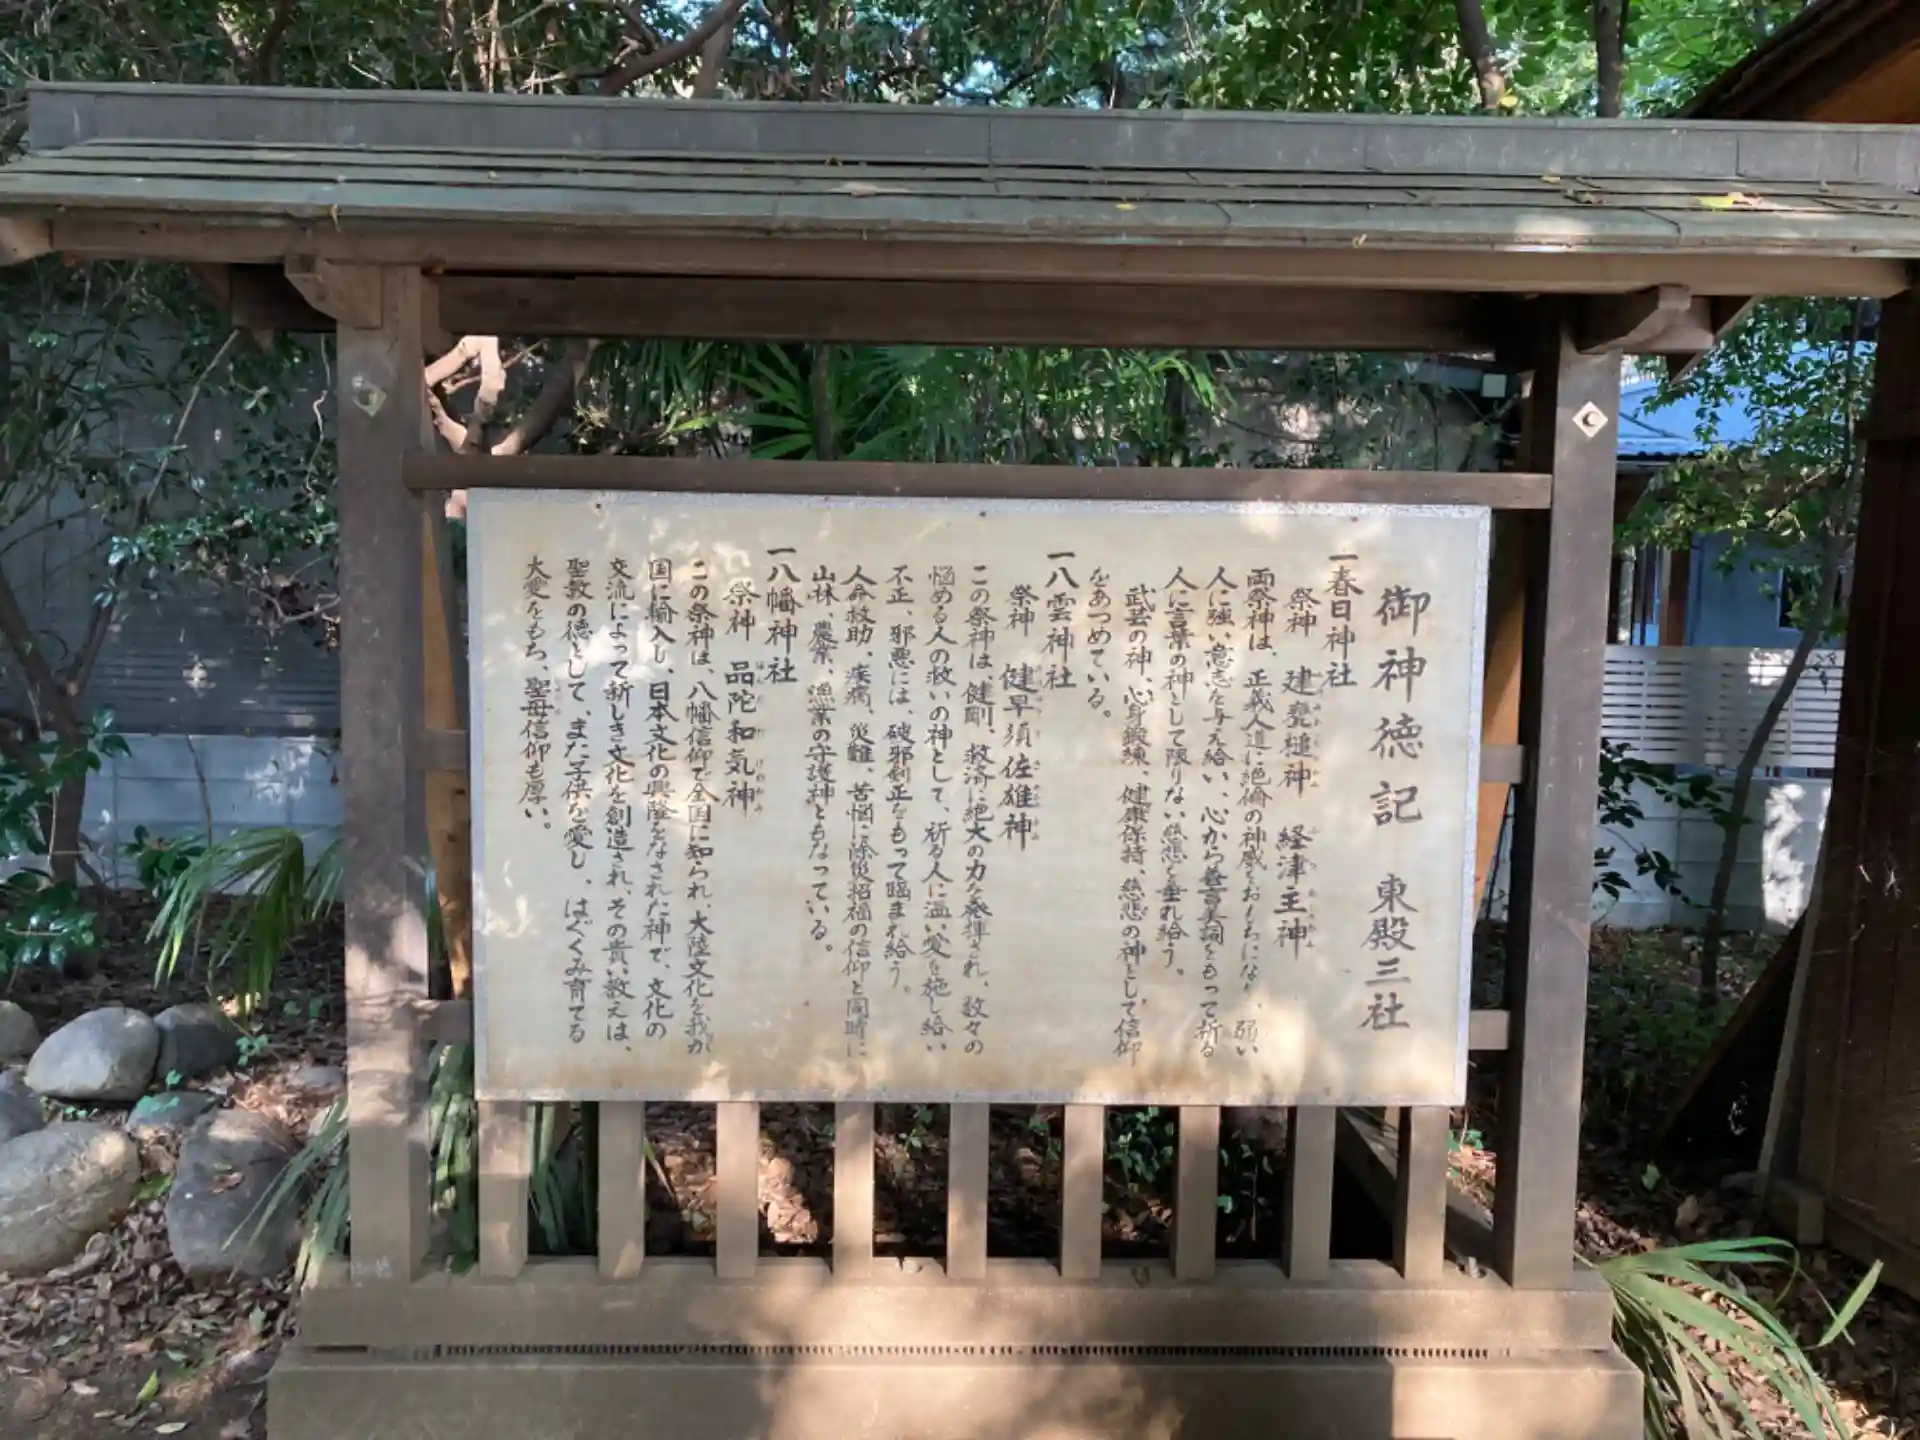 御神徳記 東殿三社
一春日神社
祭神 建甕槌神 経津主神
両祭神は、正義人道に絶倫の神威をおもちになり、弱い
人に強い意志を与え給い、心から善言美詞をもって祈る
人に言葉の神として限りない慈悲を垂れ給う。
武芸の神、心身鍛練、健康保持、慈悲の神として、信仰
をあつめている。
一八雲神社
祭神 健早須佐雄神
この祭神は、健剛、救済に絶大の力を発揮され、数々の
悩める人の救いの神として、祈る人に温い愛を施し給い
不正、邪悪には、破邪剣正をもって臨まれ給う。
人命救助、疾病、災難、苦悩に除災招福の信仰と同時に
山林、農業、漁業の守護神ともなっている。
一八幡神社
祭神 品陀和気神
この祭神は、八幡信仰で全国に知られ、大陸文化を我が
国に輸入し、日本文化の興隆をなされた神で、文化の
交流によって新しき文化を創造され、その貴い教えは、
聖教の徳として、また子供を愛し、はぐくみ育てる
大愛をもち、聖母信仰も厚い。